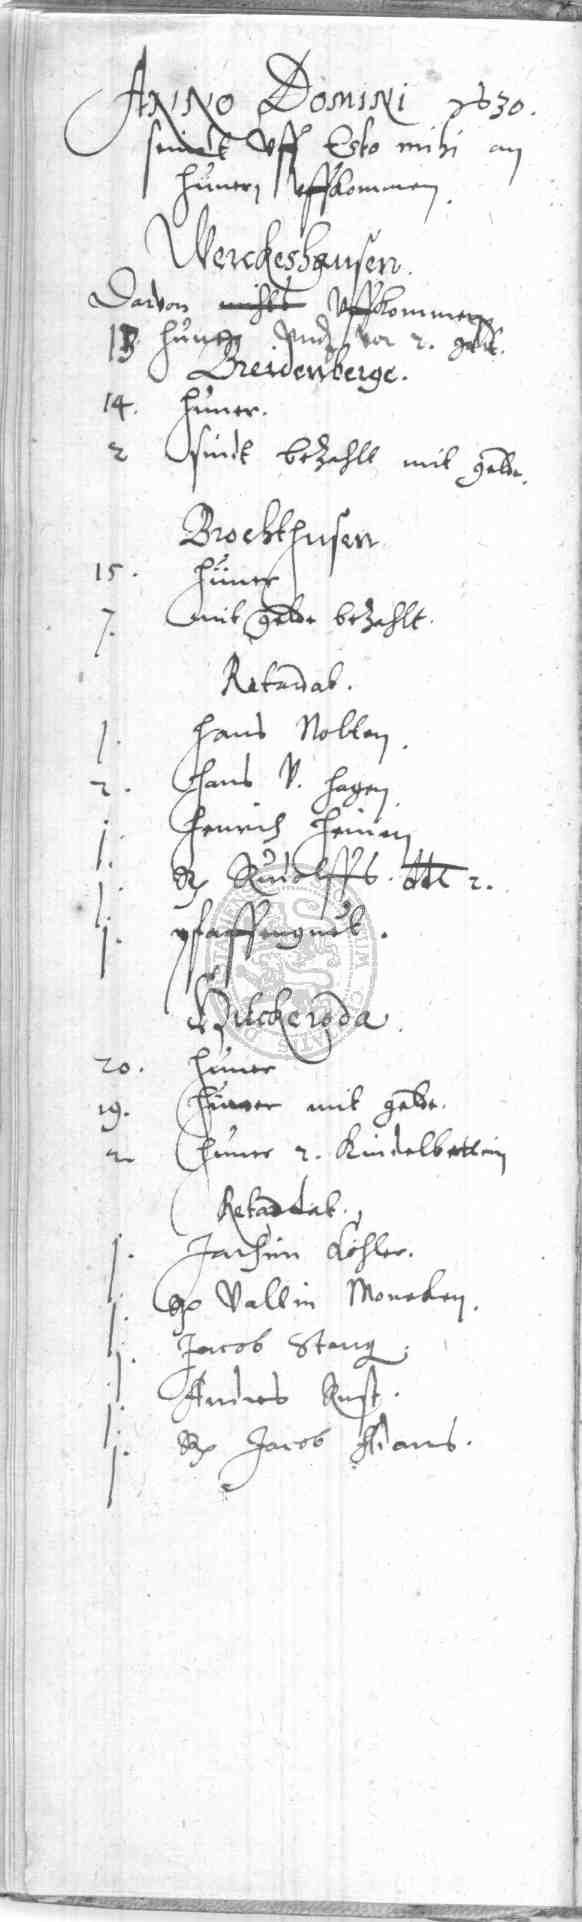 ANNO DOMINI 1630.
seindt Vff Esto mihi an
Hünern Vffkommen.
Werckeshausen.
Darvon nichts Vffkommen
13. Hüner Vnd vor 2. geldt.
Breidenberge.
14. Hüner.
2 sindt bezahlt mit gelde.
Brochthusen
15. Hüner
7. mit gelde bezahlt.
Retardat.
1. Hans Nolten.
2. Hans V. Hagen.
1. Henrich Heinen
1. Rudolffs. 2.
1. pfaffenguet.
Hilckeroda.
20. Hüner
19. Hüner mit gelde.
2 Hüner 2. Kindelbetterin
Retardat.
1. Jochim Köhler.
1. Valtin Monecken.
1. Jacob Stang.
1. Andres Rust.
1. Jacob Adams.